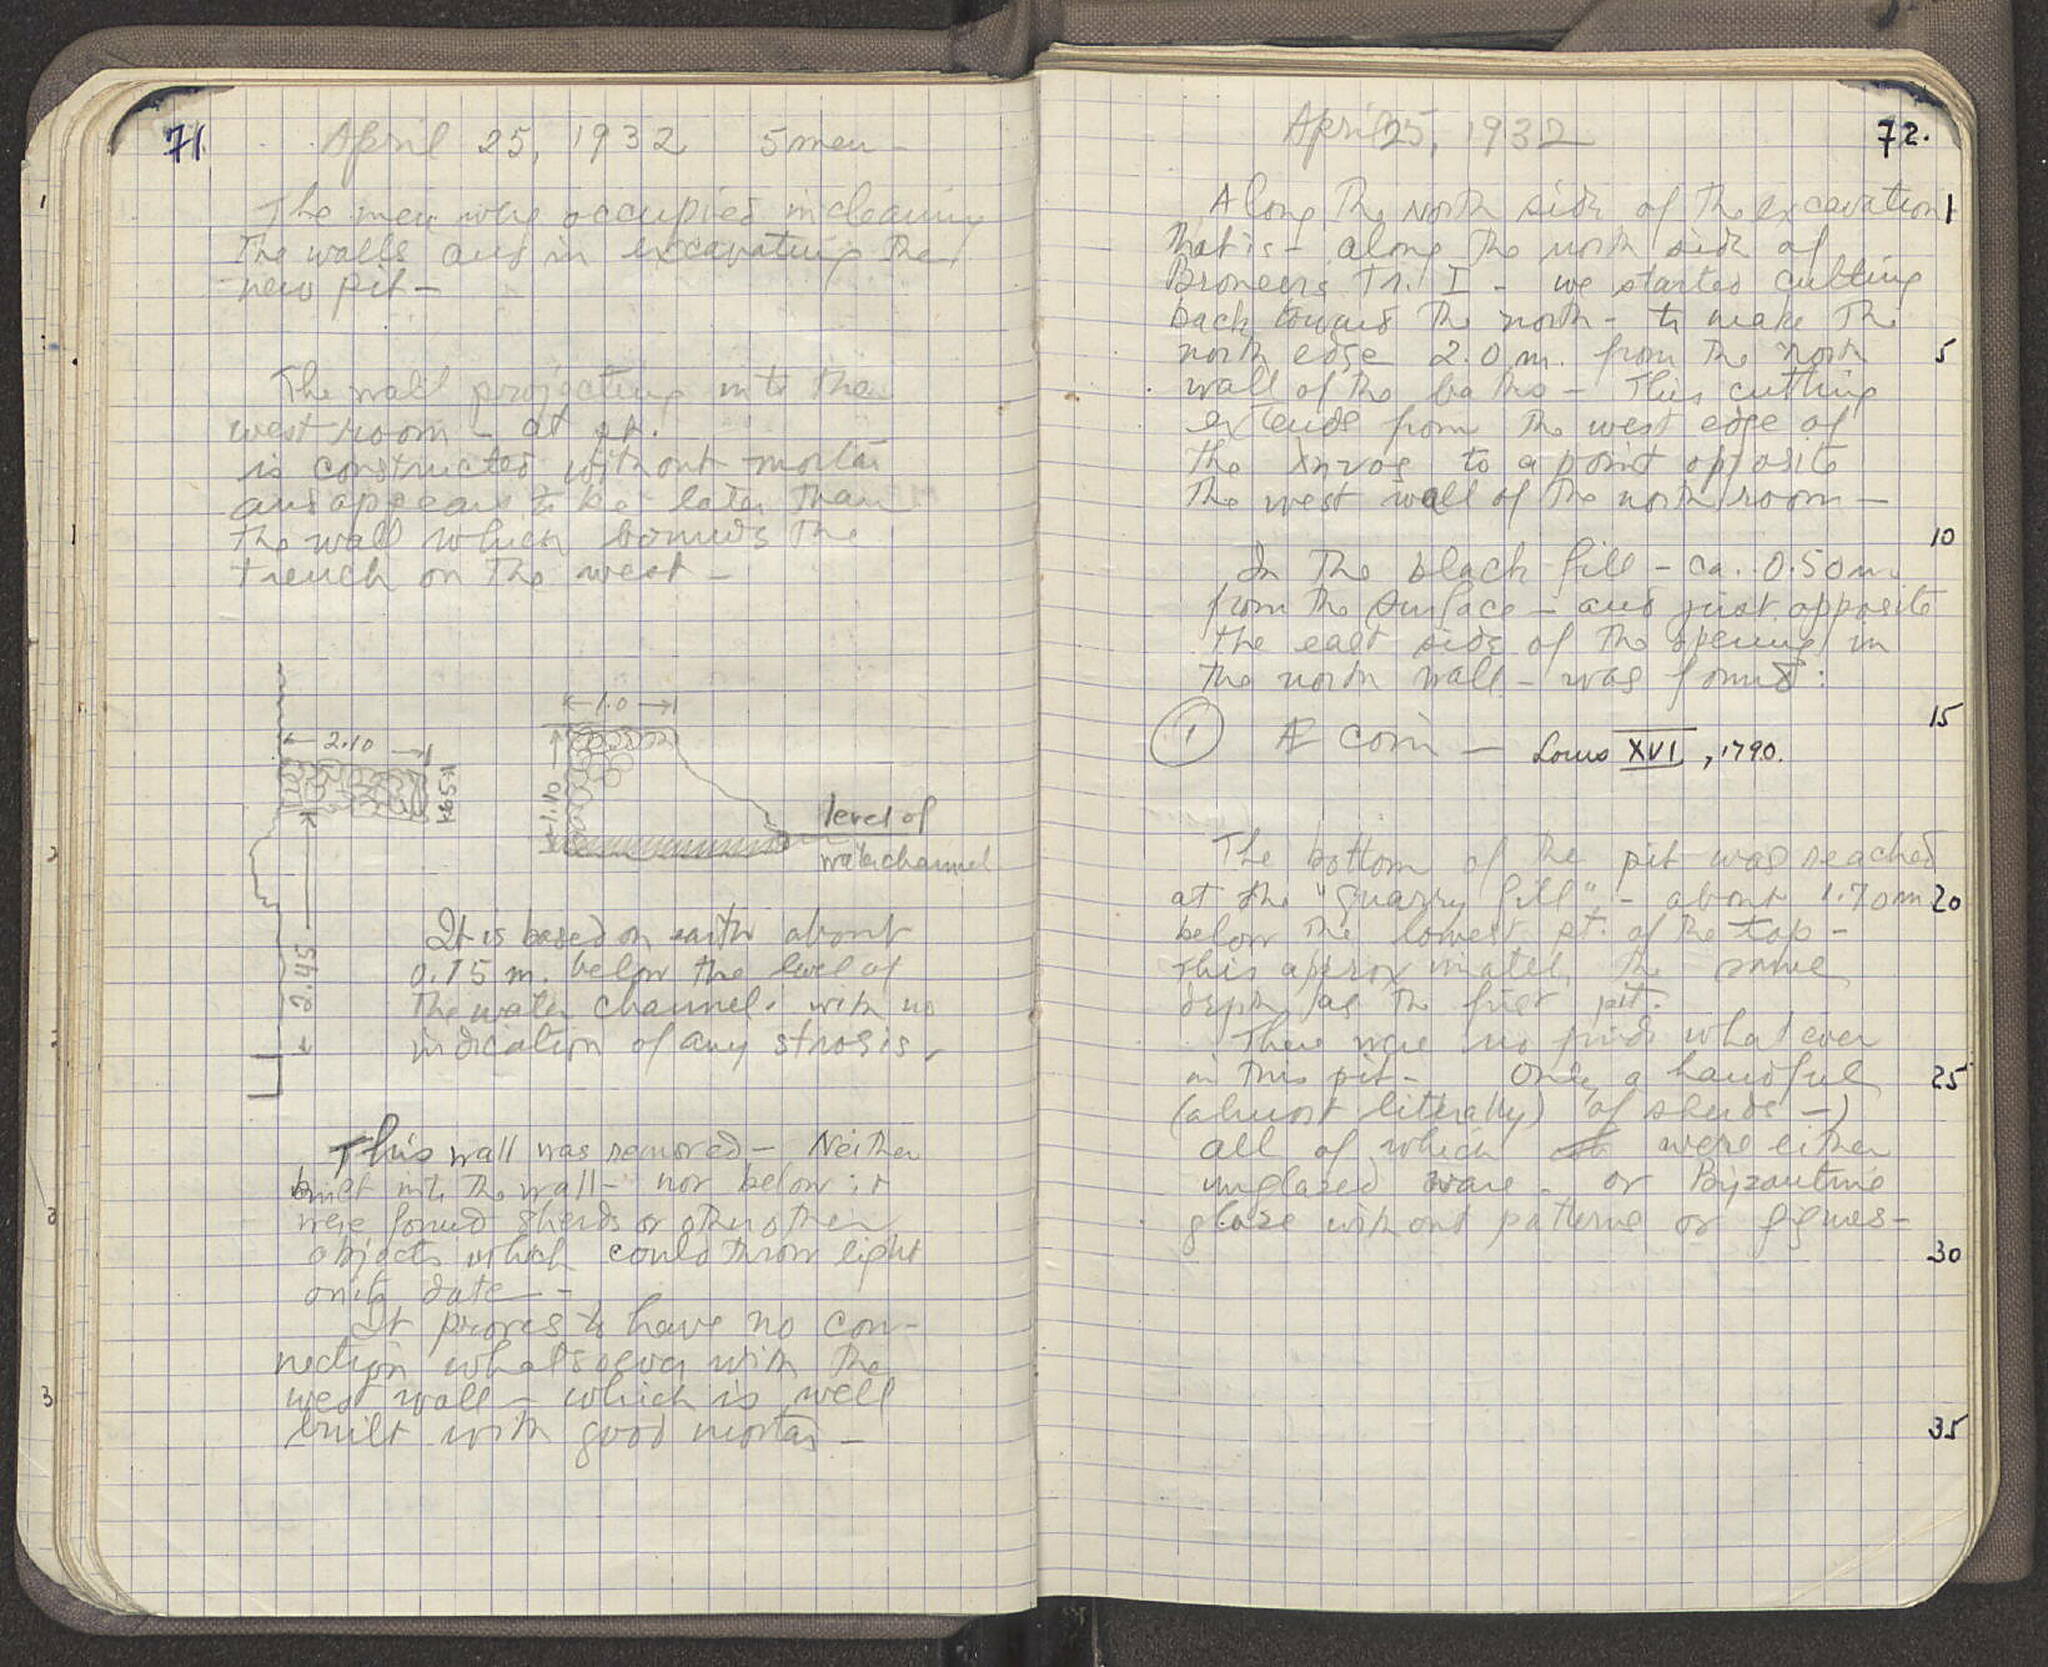 71.
April 25, 1932 5 men -
The men were occupied in cleaning
the walls and in excavating the
new pit -
The wall projecting into the
west room - at pt.
is constructed without mortar
and appears to be later than
the wall which bounds the
trench on the west -
1.0
2.10
1.10
level of
water channel
2.45
It is based on earth about
0.15 m. below the level of
the water channel. with no
indication of any strosis.
This wall was removed - Neither
built into the wall - nor below it
were found sherds or other other
objects which could throw light
on its date -
It proves to have no con-
nection whatsoever with the
west wall - which is well
built with good mortar -
72.
April 25, 1932
Along the North side of the excavation 1
that is - along the north side of
Broneers Tr. I - we started cutting
back toward the north - to make the
north edge 2.0 m. from the north 5
wall of the baths - This cutting
extends from the west edge of
the to a point opposite
the west wall of the north room -
10
In the black fill - ca. 0.50 m.
from the surface - and just opposite
the east side of the opening in
the north wall - was found:
15
1 Æ coin - Louis XVI, 1790.
The bottom of the pit was reached
at the "quarry fill", - about 1.70 m 20
below the lowest pt. of the top -
This approximately the same
depth as the first pit.
There were no finds whatever
in this pit - Only a handful 25
(almost literally) of sherds -)
all of which were either
unglazed ware - or Byzantine
glaze without patterns or figures -
30
35